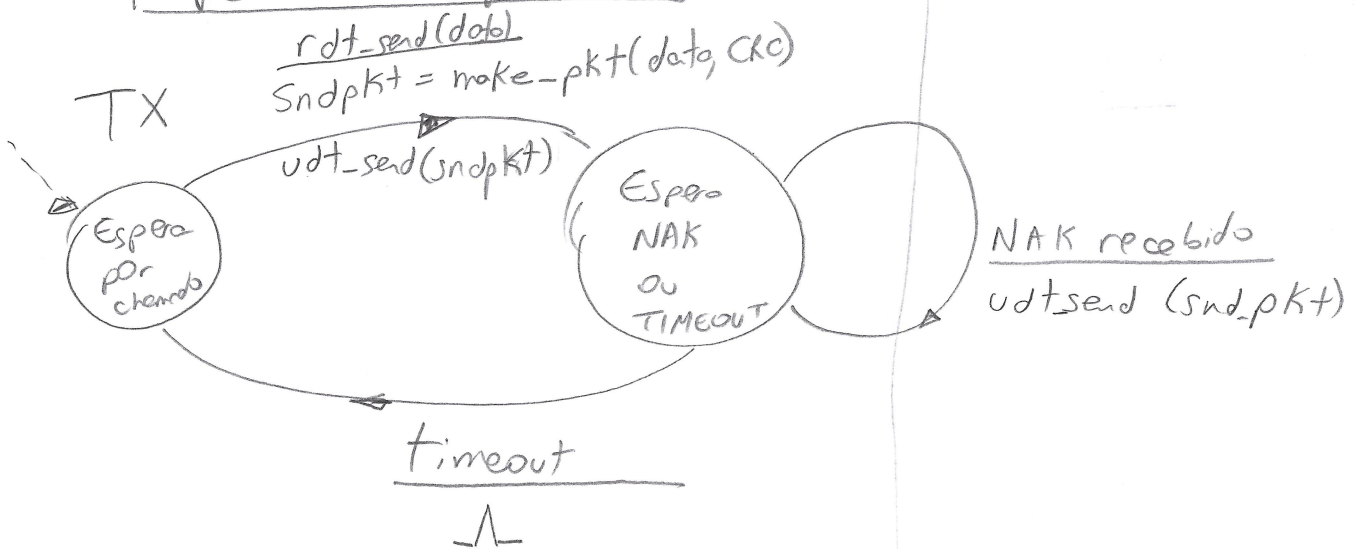 rdt_send(data)
Sndpkt = make_pkt(data, CRC)
TX
udt_send(sndpkt)
Espera
por
chamada
Espera
NAK
ou
TIMEOUT
NAK recebido
udt_send (snd_pkt)
timeout
Λ